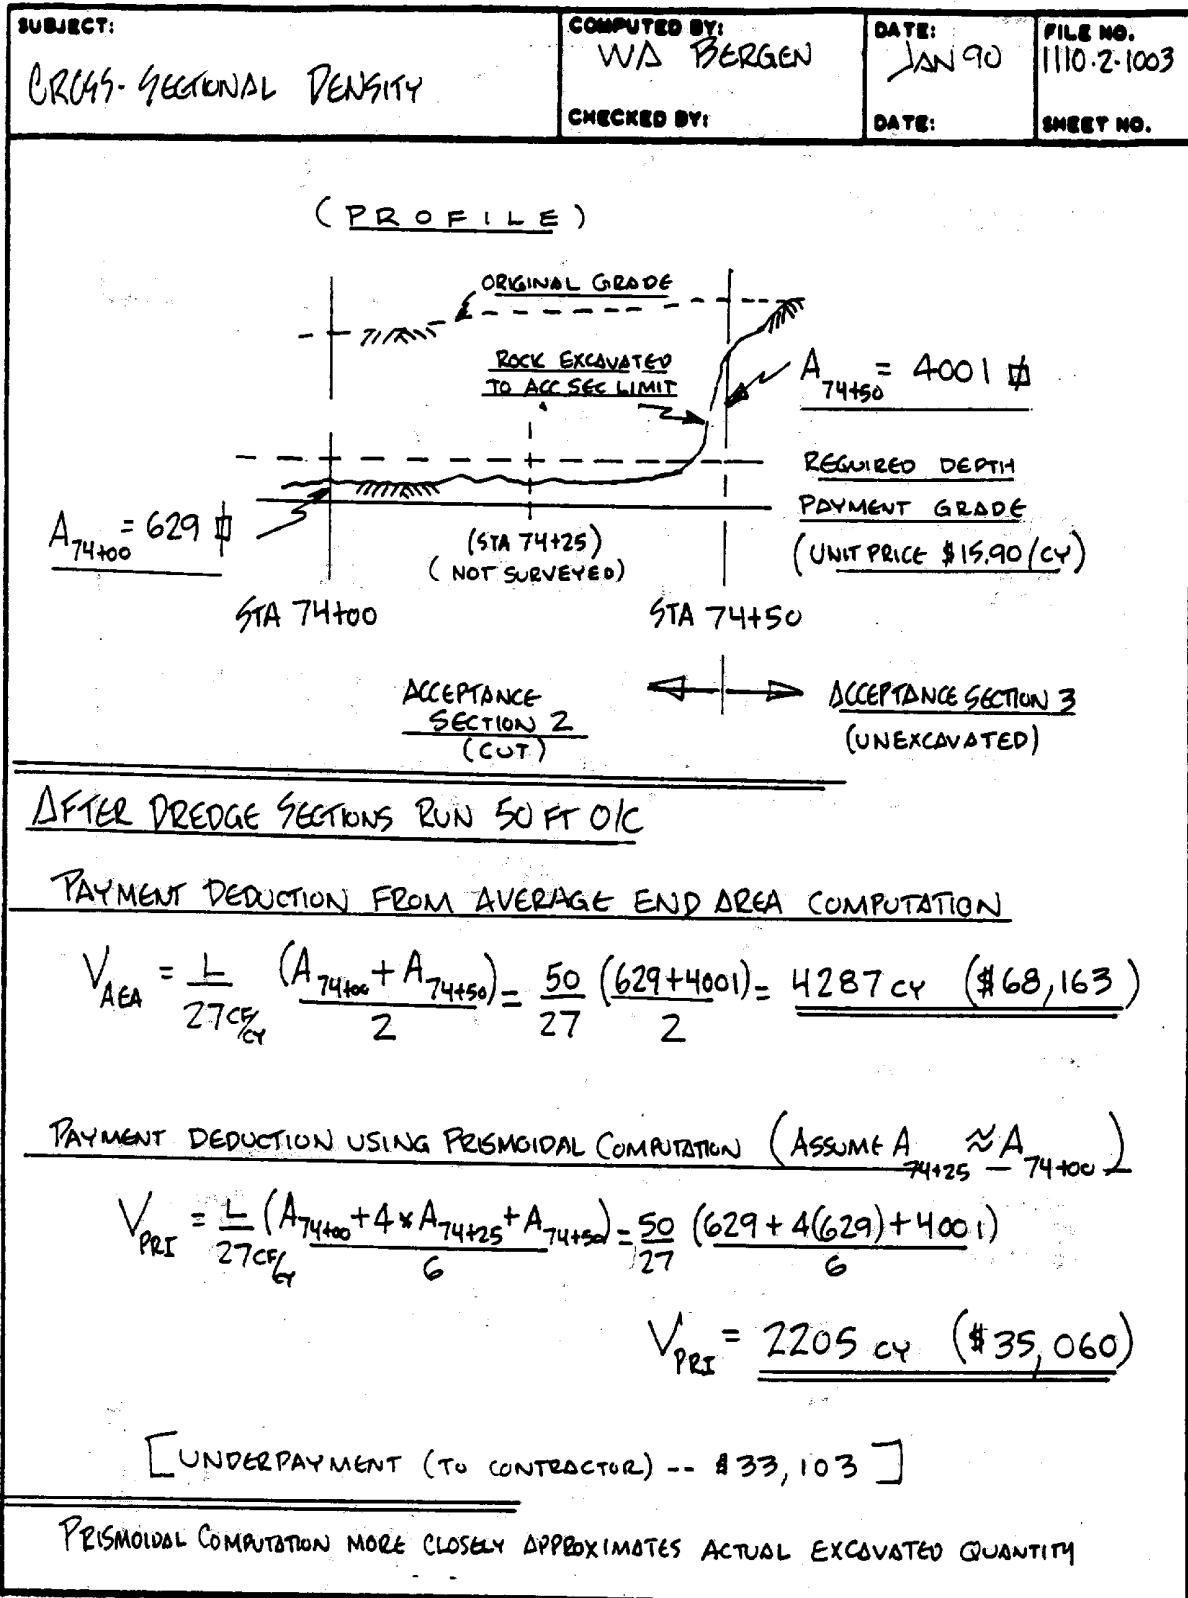 SUBJECT:
CROSS-SECTIONAL DENSITY
COMPUTED BY:
WA BERGEN
CHECKED BY:
DATE:
JAN 90
DATE:
FILE NO.
1110-2-1003
SHEET NO.
(PROFILE)
ORIGINAL GRADE
ROCK EXCAVATED
TO ACC SEC LIMIT
A74+50 = 4001 ⌷
REQUIRED DEPTH
PAYMENT GRADE
(UNIT PRICE $15.90/CY)
A74+00 = 629 ⌷
(STA 74+25)
(NOT SURVEYED)
STA 74+00
STA 74+50
ACCEPTANCE
SECTION 2
(CUT)
ACCEPTANCE SECTION 3
(UNEXCAVATED)
AFTER DREDGE SECTIONS RUN 50 FT O/C
PAYMENT DEDUCTION FROM AVERAGE END AREA COMPUTATION
V_AEA = L/27 CF/CY (A74+00 + A74+50)/2 = 50/27 (629+4001)/2 = 4287 CY ($68,163)
PAYMENT DEDUCTION USING PRISMOIDAL COMPUTATION (ASSUME A74+25 ≈ A74+00)
V_PRI = L/27 CF/CY (A74+00 + 4 x A74+25 + A74+50)/6 = 50/27 (629 + 4(629) + 4001)/6
V_PRI = 2205 CY ($35,060)
[UNDERPAYMENT (TO CONTRACTOR) -- $33,103]
PRISMOIDAL COMPUTATION MORE CLOSELY APPROXIMATES ACTUAL EXCAVATED QUANTITY